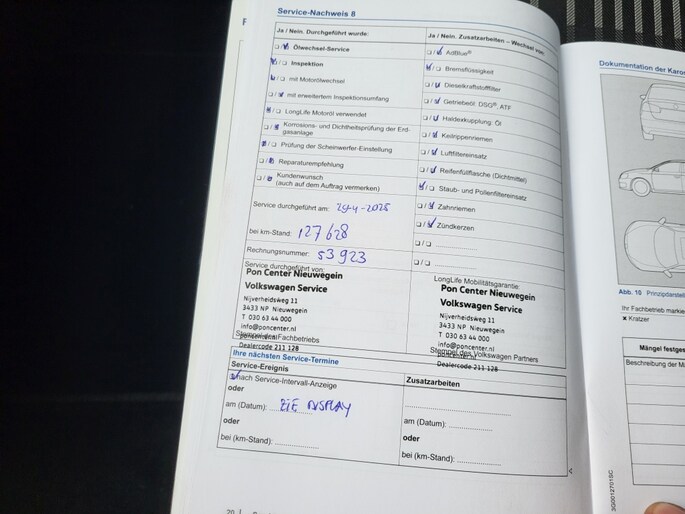 Service-Nachweis 8
Ja / Nein. Durchgeführt wurde:
Ölwechsel-Service
Inspektion
mit Motorölwechsel
mit erweitertem Inspektionsumfang
LongLife Motoröl verwendet
Korrosions- und Dichtheitsprüfung der Erd-
gasanlage
Prüfung der Scheinwerfer-Einstellung
Reparaturempfehlung
Kundenwunsch
(auch auf dem Auftrag vermerken)
Ja / Nein. Zusatzarbeiten – Wechsel von:
AdBlue®
Bremsflüssigkeit
Dieselkraftstofffilter
Getriebeöl: DSG®, ATF
Haldexkupplung: Öl
Keilrippenriemen
Luftfiltereinsatz
Reifenfüllflasche (Dichtmittel)
Staub- und Pollenfiltereinsatz
Zahnriemen
Zündkerzen
Service durchgeführt am: 29-4-2025
bei km-Stand: 127628
Rechnungsnummer: 53923
Service durchgeführt von:
Pon Center Nieuwegein
Volkswagen Service
Nijverheidsweg 11
3433 NP Nieuwegein
T 030 63 44 000
info@poncenter.nl
poncenter.nl
Dealercode 211 128
Stempel des Fachbetriebs
LongLife Mobilitätsgarantie:
Pon Center Nieuwegein
Volkswagen Service
Nijverheidsweg 11
3433 NP Nieuwegein
T 030 63 44 000
info@poncenter.nl
Stempel des Volkswagen Partners
Dealercode 211 128
Ihre nächsten Service-Termine
Service-Ereignis
nach Service-Intervall-Anzeige
oder
am (Datum): ZIE DISPLAY
oder
bei (km-Stand):
Zusatzarbeiten
am (Datum):
oder
bei (km-Stand):
20
Dokumentation der Karos
Abb. 10 Prinzipdarstell
Ihr Fachbetrieb markie
× Kratzer
Mängel festges
Beschreibung der Mä
3G0012701SC